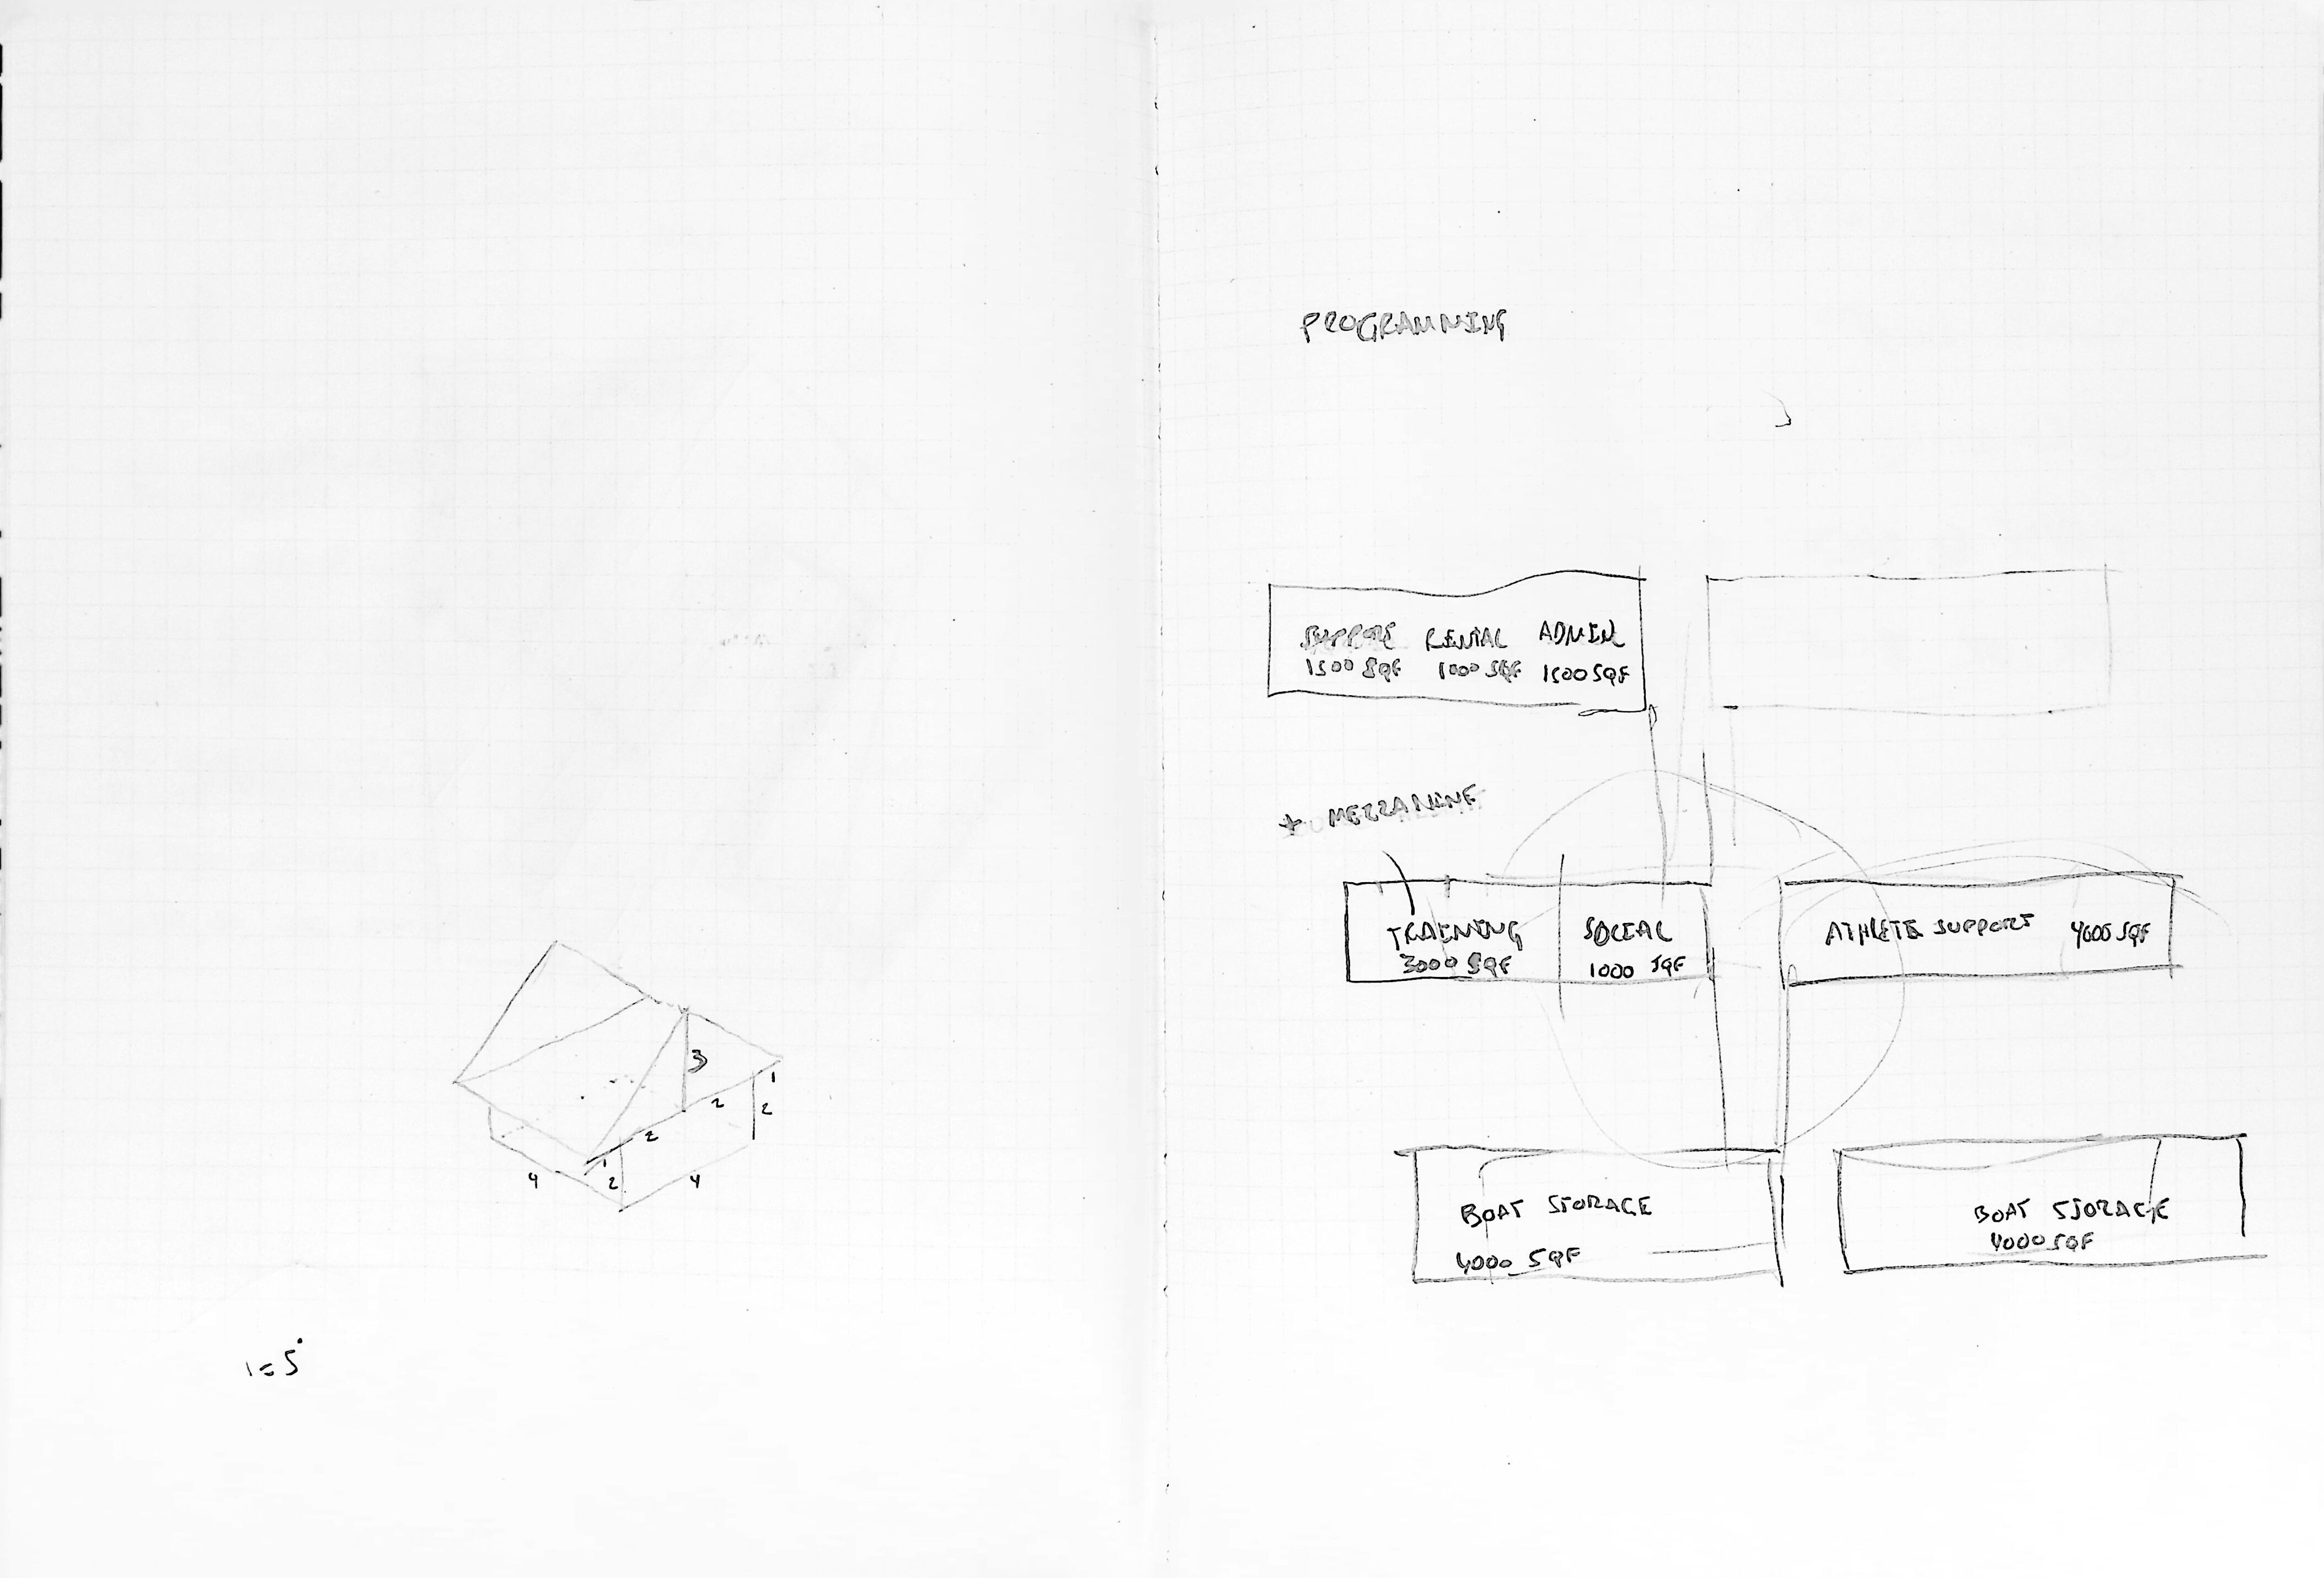 3
1
2
2
2
1
2
4
4
1=5'
PROGRAMMING
SUPPORT RENTAL ADMIN
1500 SQF 1000 SQF 1500 SQF
* MEZZANINE
TRAINING SOCIAL ATHLETE SUPPORT 4000 SQF
3000 SQF 1000 SQF
BOAT STORAGE BOAT STORAGE
4000 SQF 4000 SQF